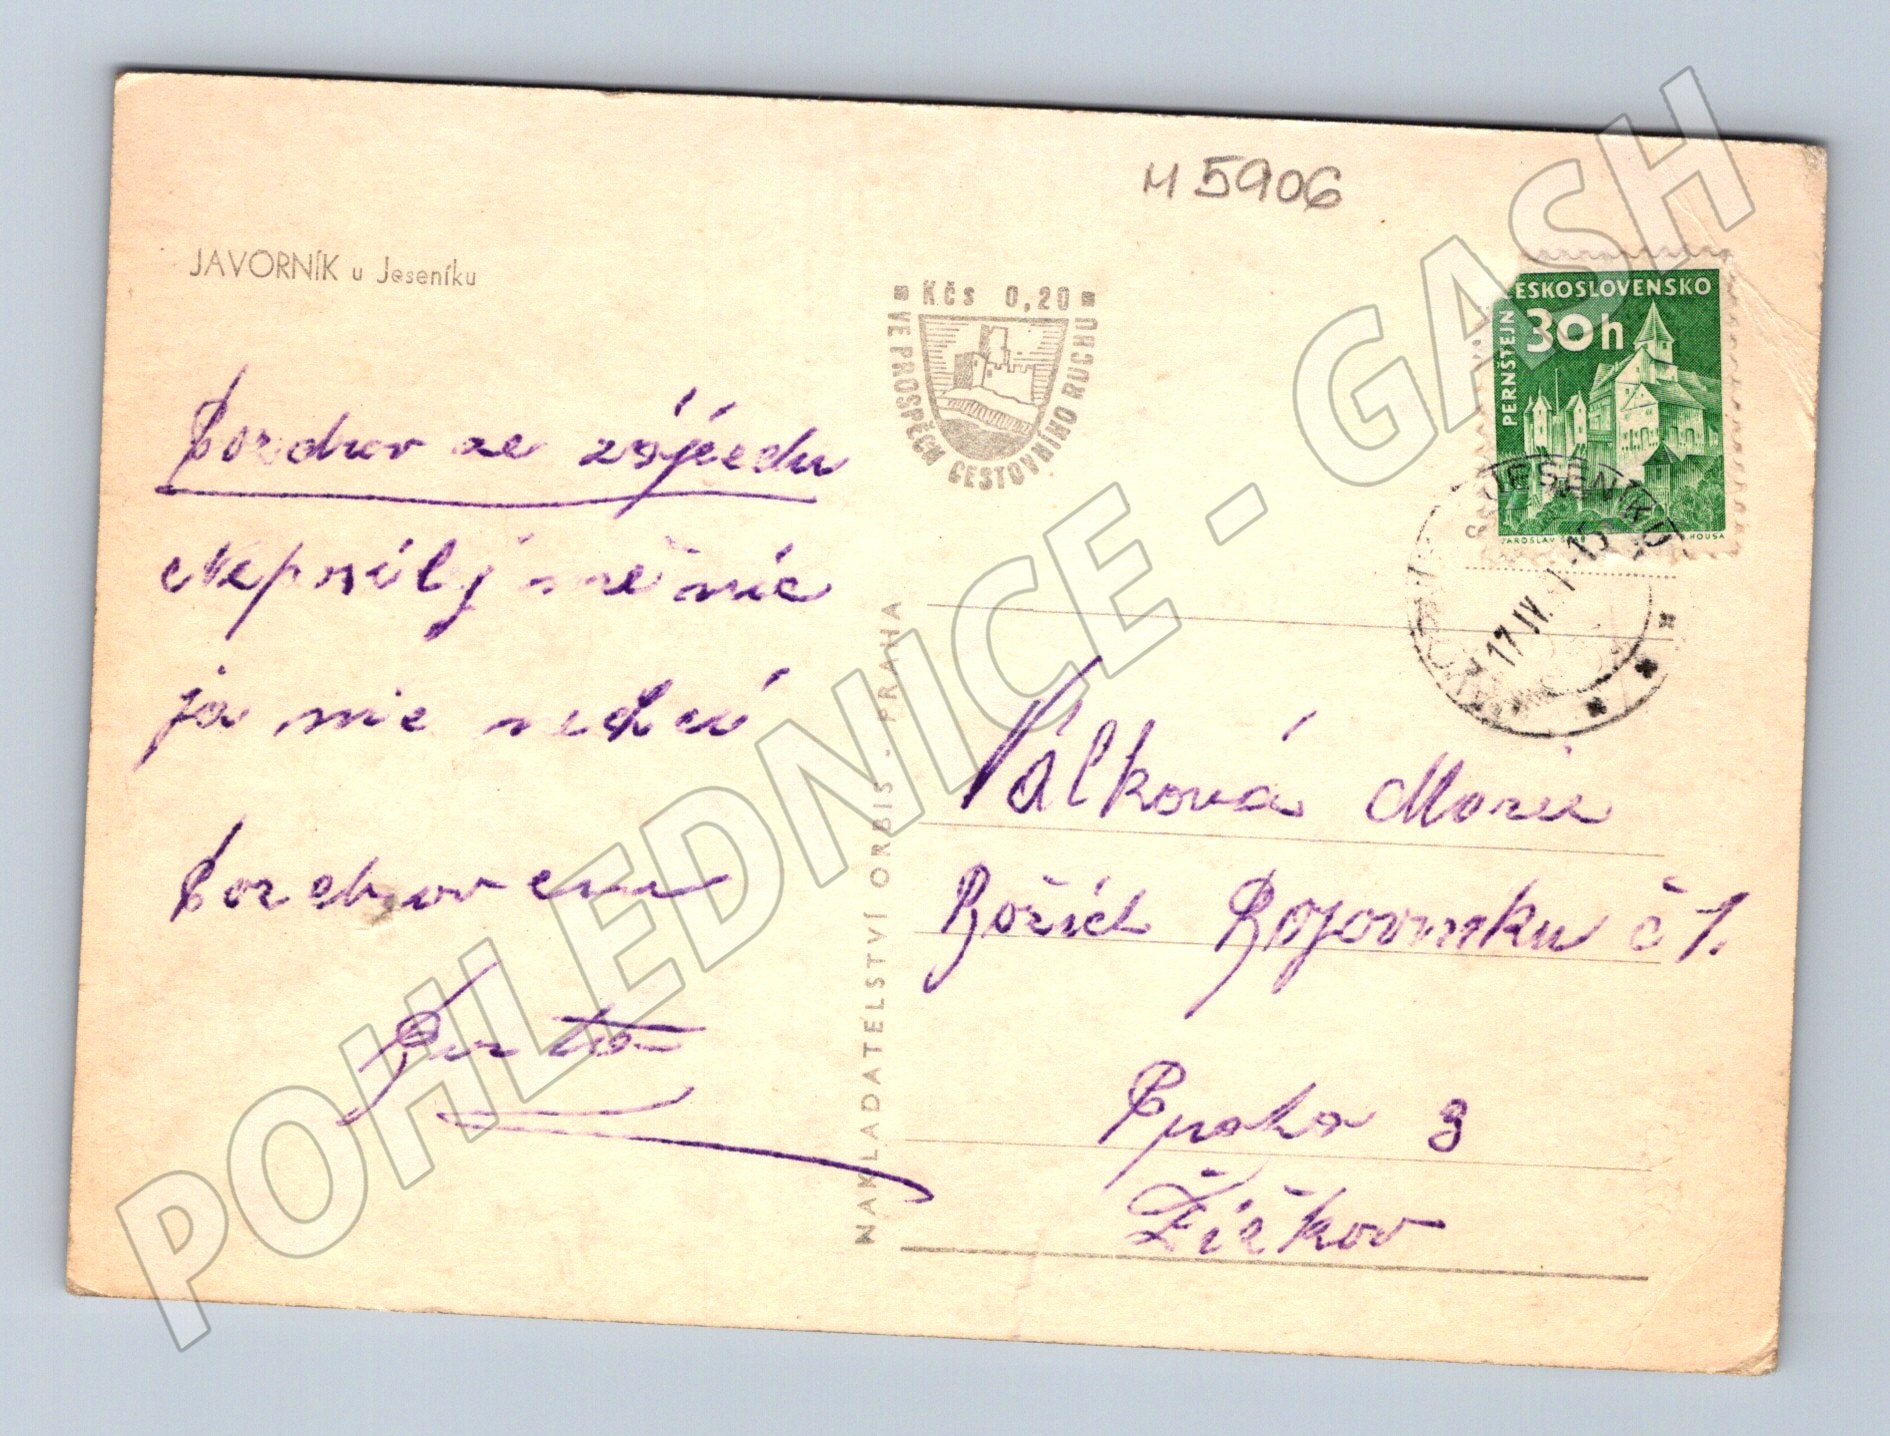 M 5906
JAVORNÍK u Jeseníku
Kčs 0,20
VE PROSPĚCH CESTOVNÍHO RUCHU
ČESKOSLOVENSKO
PERNŠTEJN
30h
JAROSLAV
HOUSA
JESENÍKU
17.IV.
Pozdrav ze zájezdu
Neposílej mě nic
ja nic nechcú
Pozdravem
NAKLADATELSTVÍ ORBIS - PRAHA
Válková Marie
č 1.
Praha 3
Žižkov
POHLEDNICE - GASH